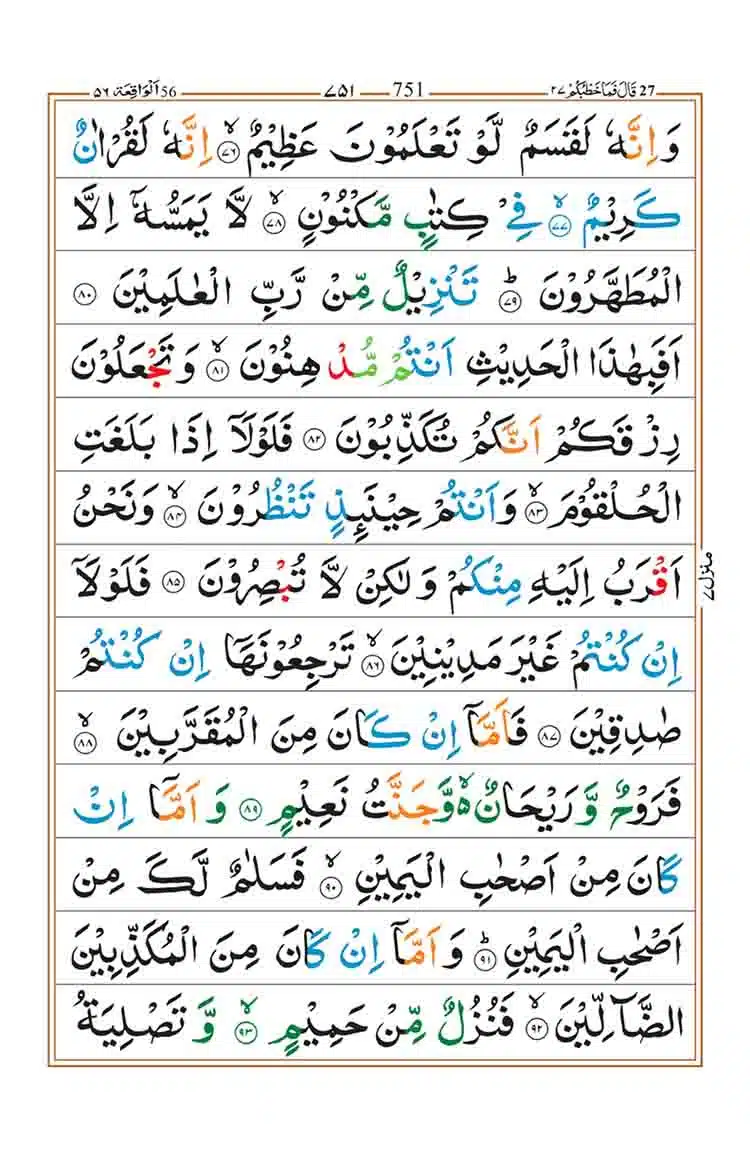 ٥٦ اَلْوَاقِعَة 56 ٧٥١ 751 ٢٧ قَالَ فَمَا خَطْبُكُمْ 27
وَ اِنَّهٗ لَقَسَمٌ لَّوْ تَعْلَمُوْنَ عَظِيْمٌ ۙ﴿٧٦﴾ اِنَّهٗ لَقُرْاٰنٌ
كَرِيْمٌ ۙ﴿٧٧﴾ فِيْ كِتٰبٍ مَّكْنُوْنٍ ۙ﴿٧٨﴾ لَّا يَمَسُّهٗۤ اِلَّا
الْمُطَهَّرُوْنَ ؕ﴿٧٩﴾ تَنْزِيْلٌ مِّنْ رَّبِّ الْعٰلَمِيْنَ ﴿٨٠﴾
اَفَبِهٰذَا الْحَدِيْثِ اَنْتُمْ مُّدْهِنُوْنَ ۙ﴿٨١﴾ وَ تَجْعَلُوْنَ
رِزْقَكُمْ اَنَّكُمْ تُكَذِّبُوْنَ ﴿٨٢﴾ فَلَوْلَاۤ اِذَا بَلَغَتِ
الْحُلْقُوْمَ ۙ﴿٨٣﴾ وَ اَنْتُمْ حِيْنَىِٕذٍ تَنْظُرُوْنَ ۙ﴿٨٤﴾ وَ نَحْنُ
اَقْرَبُ اِلَيْهِ مِنْكُمْ وَ لٰكِنْ لَّا تُبْصِرُوْنَ ﴿٨٥﴾ فَلَوْلَاۤ
اِنْ كُنْتُمْ غَيْرَ مَدِيْنِيْنَ ۙ﴿٨٦﴾ تَرْجِعُوْنَهَاۤ اِنْ كُنْتُمْ
صٰدِقِيْنَ ﴿٨٧﴾ فَاَمَّاۤ اِنْ كَانَ مِنَ الْمُقَرَّبِيْنَ ۙ﴿٨٨﴾
فَرَوْحٌ وَّ رَيْحَانٌ ۙ۬ وَّ جَنَّتُ نَعِيْمٍ ﴿٨٩﴾ وَ اَمَّاۤ اِنْ
كَانَ مِنْ اَصْحٰبِ الْيَمِيْنِ ۙ﴿٩٠﴾ فَسَلٰمٌ لَّكَ مِنْ
اَصْحٰبِ الْيَمِيْنِ ؕ﴿٩١﴾ وَ اَمَّاۤ اِنْ كَانَ مِنَ الْمُكَذِّبِيْنَ
الضَّآلِّيْنَ ۙ﴿٩٢﴾ فَنُزُلٌ مِّنْ حَمِيْمٍ ۙ﴿٩٣﴾ وَّ تَصْلِيَةُ
منزل ٧